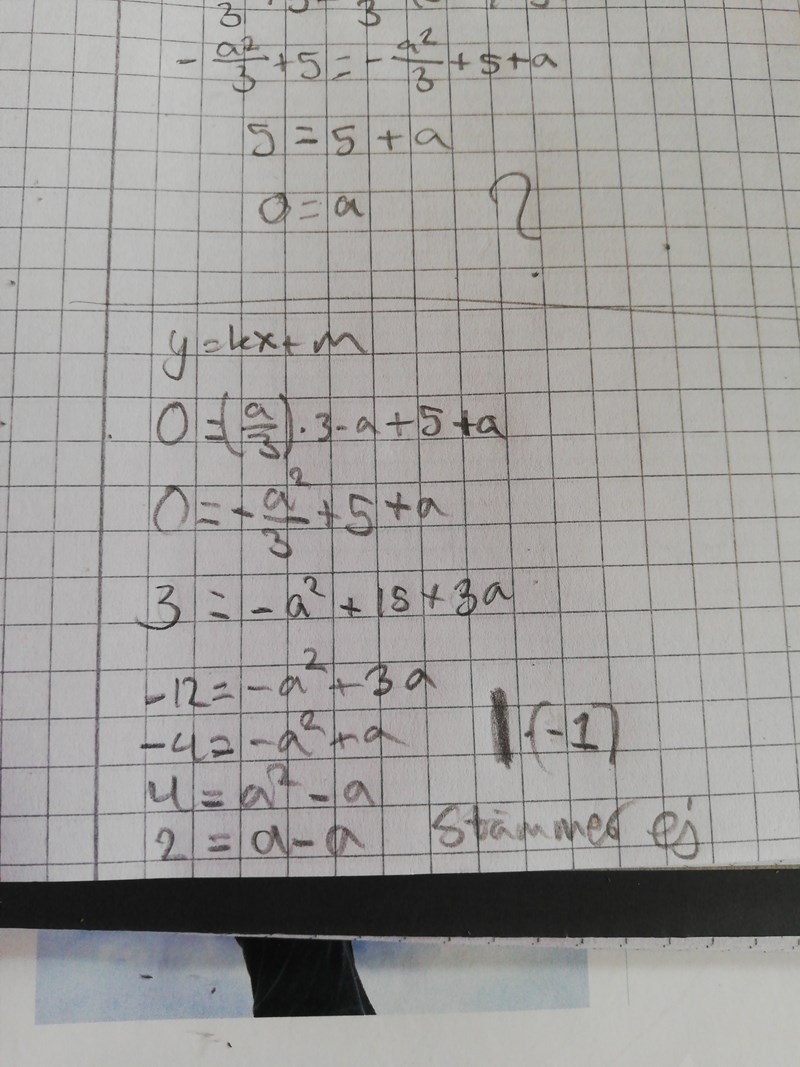 - a²/3 + 5 = - a²/3 + 5 + a
5 = 5 + a
0 = a ?
y = kx + m
0 = (a/3) · 3 - a + 5 + a
0 = - a²/3 + 5 + a
3 = - a² + 15 + 3a
-12 = - a² + 3a
-4 = - a² + a |·(-1)
4 = a² - a
2 = a - a Stämmer ej